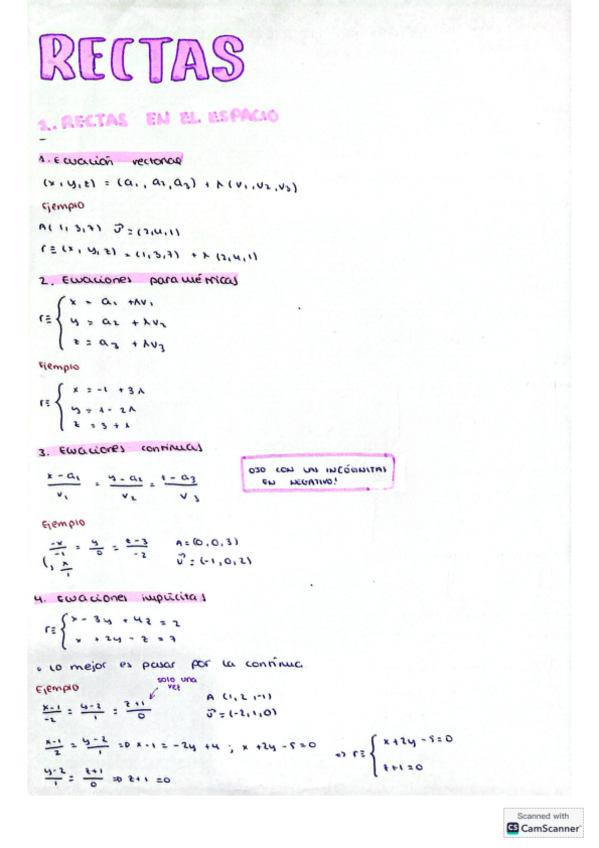 RECTAS
1. RECTAS EN EL ESPACIO
1. Ecuación vectorial
(x, y, z) = (a₁, a₂, a₃) + λ(v₁, v₂, v₃)
Ejemplo
A(1, 3, 7) v⃗ = (2, 4, 1)
r ≡ (x, y, z) = (1, 3, 7) + λ (2, 4, 1)
2. Ecuaciones paramétricas
r ≡ { x = a₁ + λv₁
y = a₂ + λv₂
z = a₃ + λv₃
Ejemplo
r ≡ { x = -1 + 3λ
y = 1 - 2λ
z = 3 + λ
3. Ecuaciones continuas
(x - a₁)/v₁ = (y - a₂)/v₂ = (z - a₃)/v₃
OJO CON LAS INCÓGNITAS
EN NEGATIVO!
Ejemplo
-x/-1 = y/0 = (z-3)/-2 A = (0, 0, 3)
x/1 v⃗ = (-1, 0, 2)
4. Ecuaciones implícitas
r ≡ { x - 3y + 4z = 2
x + 2y - z = 7
Lo mejor es pasar por la continua
Ejemplo
solo una
vez
(x-1)/-2 = (y-2)/1 = (z+1)/0 A (1, 2, -1)
v⃗ = (-2, 1, 0)
(x-1)/2 = (y-2)/1 => x-1 = -2y + 4 ; x + 2y - 5 = 0 => r ≡ { x + 2y - 5 = 0
z + 1 = 0
(y-2)/1 = (z+1)/0 => z + 1 = 0
Scanned with
CS CamScanner